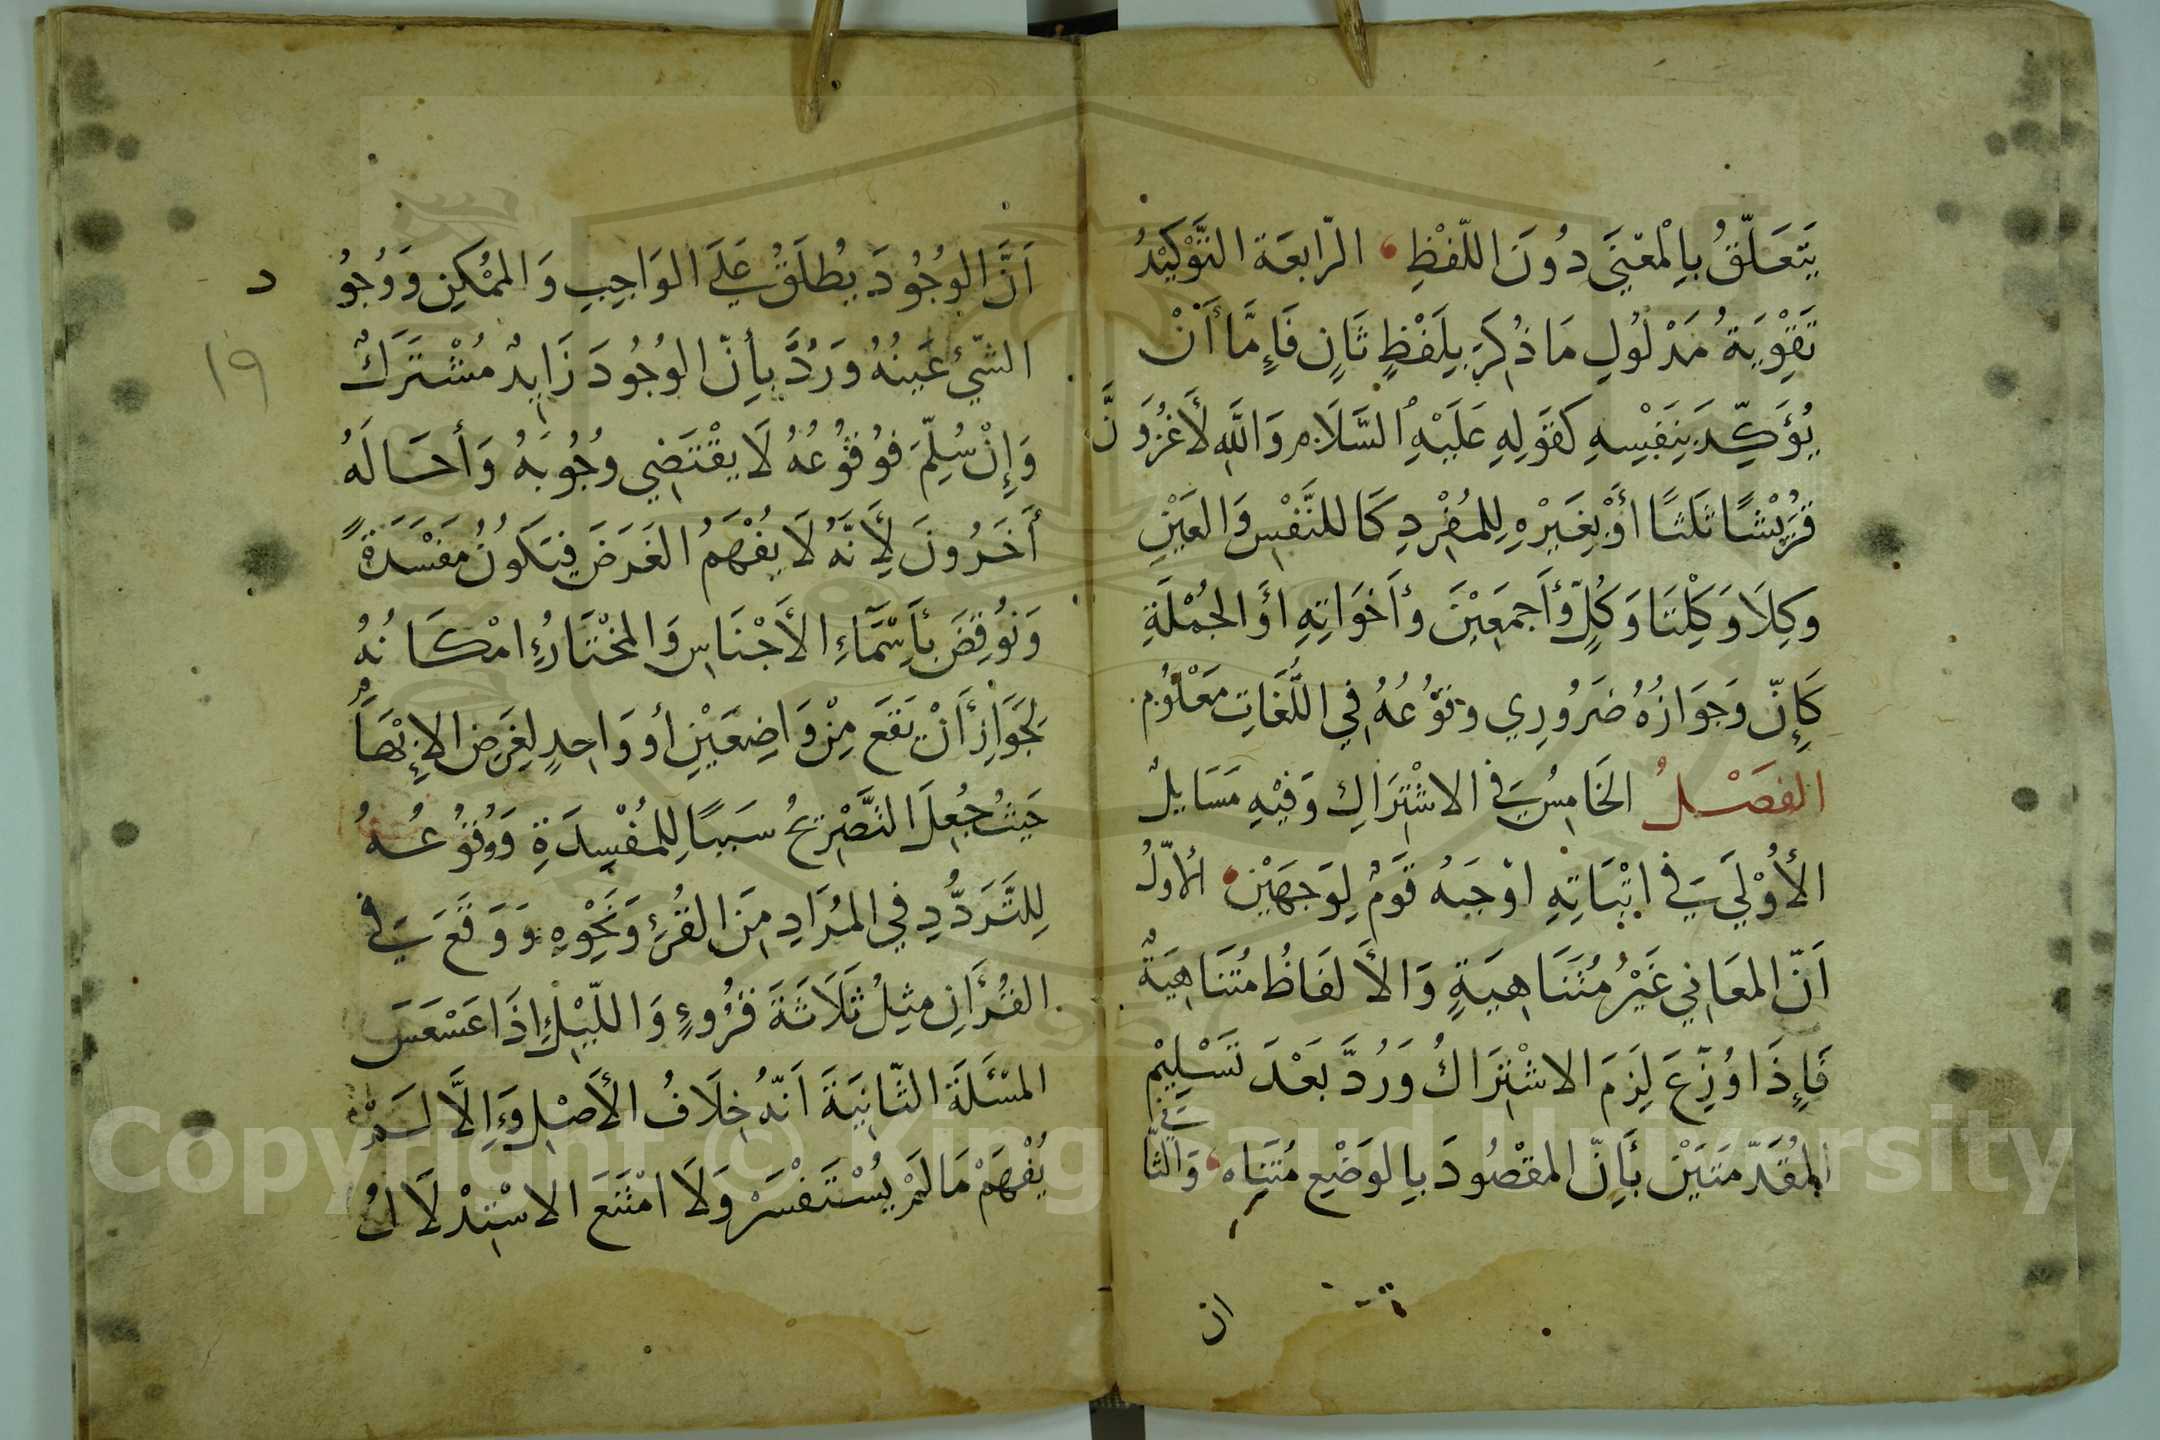 يَتَعَلَّقُ بِالْمَعْنَى دُونَ اللَّفْظِ الرَّابِعَة التَّوْكِيْدُ
تَقْوِيَةُ مَدْلُولِ مَا ذُكِرَ بِلَفْظٍ ثَانٍ فَإِمَّا أَنْ
يُؤَكِّدَ بِنَفْسِهِ كَقَولِهِ عَلَيْهِ السَّلَام وَاللَّهِ لَأَغْزُوَنَّ
قُرَيْشًا ثَلثًا أَوْ بِغَيْرِهِ لِلمُفْرِدِ كَاللنَّفْسِ وَالعَيْنِ
وَكِلَا وَكِلْتَا وَكُلٍّ وَأَجْمَعِيْنَ وأَخَوَاتِهِ أوَ الجُمْلَةِ
كَإِنَّ وَجَوَازُهُ ضَرُورِي وَوُقُوعُهُ فِي اللُّغَاتِ مَعْلُوْم
الفَصْلُ الخَامِسُ فِي الاشْتِرَاكِ وَفِيْهِ مَسَايِلُ
الأُوْلَى فِي اثْبَاتِهِ اوْجَبَهُ قَوْمٌ لِوَجهَيْنِ الأَوَّلُ
اَنَّ المعَانِي غَيْرُ مُتَنَاهِيَةٍ وَالأَلفَاظُ مُتَنَاهِيَةٌ
فَإِذَا وُزِّعَ لَزِمَ الاشْتِرَاكُ وَرُدَّ بَعْدَ تَسْلِيْمِ
المُقَدّمَتَيْنِ بِأَنَّ المقْصُودَ بِالوَضْعِ مُتَنَاه وَالثَّانِي
ان
اَنَّ الوُجُودَ يُطْلَقُ عَلَى الوَاجِبِ وَالممْكِنِ وَوُجُو د
١٩
الشّيْءِ عَيْنُهُ وَرُدَّ بِأَنّ الوُجُودَ زَايِدٌ مُشْتَرَكٌ
وَإِنْ سُلِّمَ فَوُقُوْعُهُ لَا يقْتَضِي وُجُوْبَهُ وَأحَالَهُ
أَخَرُونَ لِأَنَّهُ لَا يُفْهَمُ الغَرَضَ فيَكُونُ مَفْسَدَةً
وَنُوقِضَ بِأَسْمَاءِ الأَجْنَاسِ وَالمخْتَارُ امْكَانُهُ
لِجَوَازِ أَنْ يَقَعَ مِنْ وَاضِعَيْنِ أو وَاحِدٍ لِغَرَضِ الإِبْهَامِ
حَيْثُ جُعِلَ التَّصْرِيْحُ سَبَبًا لِلمُفْسِدَةِ وَوُقُوْعُهُ
لِلتَّرَدُّدِ فِي المُرَادِ مِنَ القُرْءِ وَنَحْوِهِ وَوَقَعَ فِي
القُرْأَنِ مِثِلُ ثَلَاثَةَ قُرُوءٍ وَاللّيْلِ إِذَا عَسْعَسَ
المسْئَلَة الثّانِيَةَ اَنَّهُ خِلَافُ الأَصْلِ وَإِلَّا لَمْ
يُفْهَمْ مَا لَمْ يُسْتَفْسَرْ وَلَا امْتَنَعَ الاسْتِدْلَالُ
Copyright © King Saud University